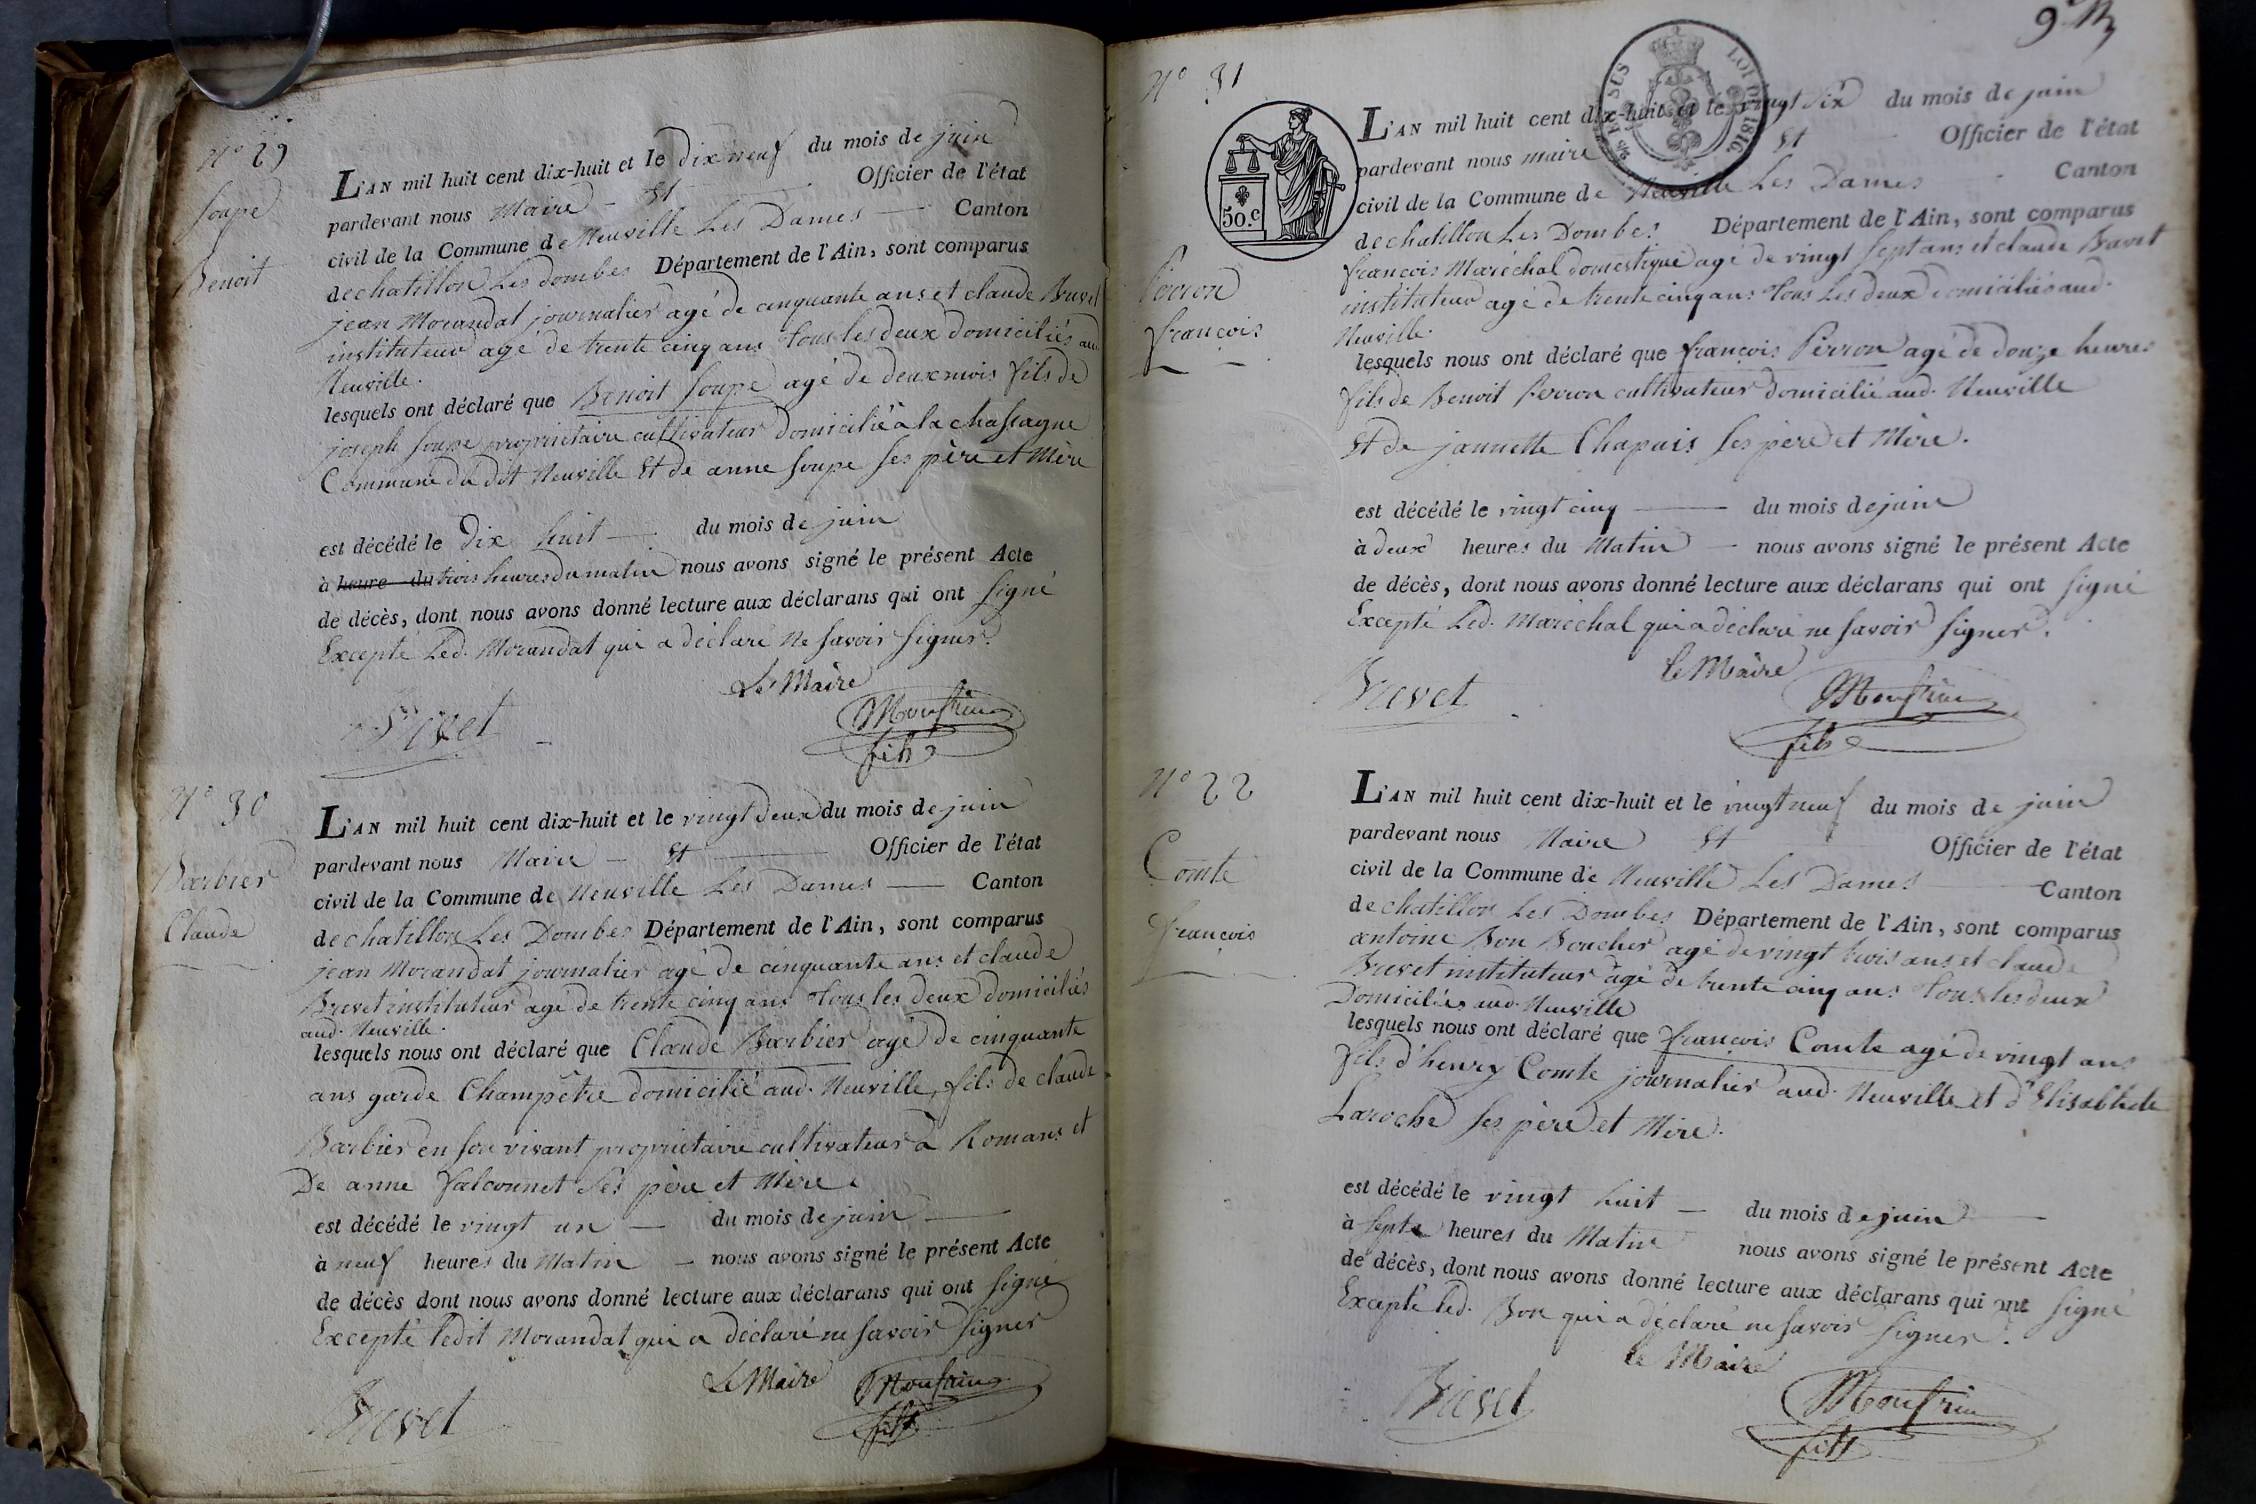 N° 29
Soupe
Benoit
L'AN mil huit cent dix-huit et le dix neuf du mois de juin
pardevant nous Maire - Et - Officier de l'état
civil de la Commune de Neuville Les Dames — Canton
de chatillon Les dombes Département de l'Ain, sont comparus
jean Morandat journalier agé de cinquante ans et claude Brevet
instituteur agé de trente cinq ans tous les deux domiciliés aud
Neuville.
lesquels ont déclaré que Benoit Soupe agé de deux mois fils de
joseph Soupe proprietaire cultivateur domicilié à la chassagne
Commune du dit Neuville Et de anne Soupe ses père et Mère
est décédé le dix huit — du mois de juin
à heure du trois heures du matin nous avons signé le présent Acte
de décès, dont nous avons donné lecture aux déclarans qui ont signé
Excepté Led. Morandat qui a déclaré ne savoir signer.
Le Maire
Brevet
Monfrin
fils
N° 30
Barbier
Claude
L'AN mil huit cent dix-huit et le vingt deux du mois de juin
pardevant nous Maire - Et — Officier de l'état
civil de la Commune de Neuville Les Dames — Canton
de chatillon Les Dombes Département de l'Ain, sont comparus
jean Morandat journalier agé de cinquante ans et claude
Brevet instituteur agé de trente cinq ans tous les deux domiciliés
aud. Neuville.
lesquels nous ont déclaré que Claude Barbier agé de cinquante
ans garde Champêtre domicilié aud. Neuville, fils de claude
Barbier en son vivant proprietaire cultivateur à Romans et
De anne falconnet Ses père et Mère.
est décédé le vingt un — du mois de juin —
à neuf heures du Matin - nous avons signé le présent Acte
de décès dont nous avons donné lecture aux déclarans qui ont signé
Excepté ledit Morandat qui a déclaré ne savoir signer
Le Maire
Brevet
Monfrin
fils
N° 31
50.c
EN SUS
LOI DE 1816.
Perron
françois
L'AN mil huit cent dix-huit et le vingt six du mois de juin
pardevant nous maire Et - Officier de l'état
civil de la Commune de Neuville Les Dames - Canton
de chatillon Les Dombes Département de l'Ain, sont comparus
françois Maréchal domestique agé de vingt sept ans et claude Brevet
instituteur agé de trente cinq ans tous les deux domiciliés aud.
Neuville.
lesquels nous ont déclaré que françois Perron agé de douze heures
fils de Benoit Perron cultivateur domicilié aud. Neuville
Et de jannette Chapuis Ses père et Mère.
est décédé le vingt cinq — du mois de juin
à deux heures du Matin - nous avons signé le présent Acte
de décès, dont nous avons donné lecture aux déclarans qui ont signé
Excepté Led. Maréchal qui a déclaré ne savoir signer.
le Maire
Brevet
Monfrin
fils
N° 22
Comte
françois
L'AN mil huit cent dix-huit et le vingt neuf du mois de juin
pardevant nous Maire Et Officier de l'état
civil de la Commune de Neuville Les Dames — Canton
de chatillon Les Dombes Département de l'Ain, sont comparus
antoine Bon Boucher agé de vingt trois ans et claude
Brevet instituteur agé de trente cinq ans tous les deux
Domiciliés aud. Neuville
lesquels nous ont déclaré que françois Comte agé de vingt ans
fils d'henry Comte journalier aud. Neuville et d'
Laroche Ses père et Mère.
est décédé le vingt huit — du mois de juin —
à Septe heures du Matin nous avons signé le présent Acte
de décès, dont nous avons donné lecture aux déclarans qui ont signé
Excepté Led. Bon qui a déclaré ne savoir signer.
le Maire
Brevet
Monfrin
fils